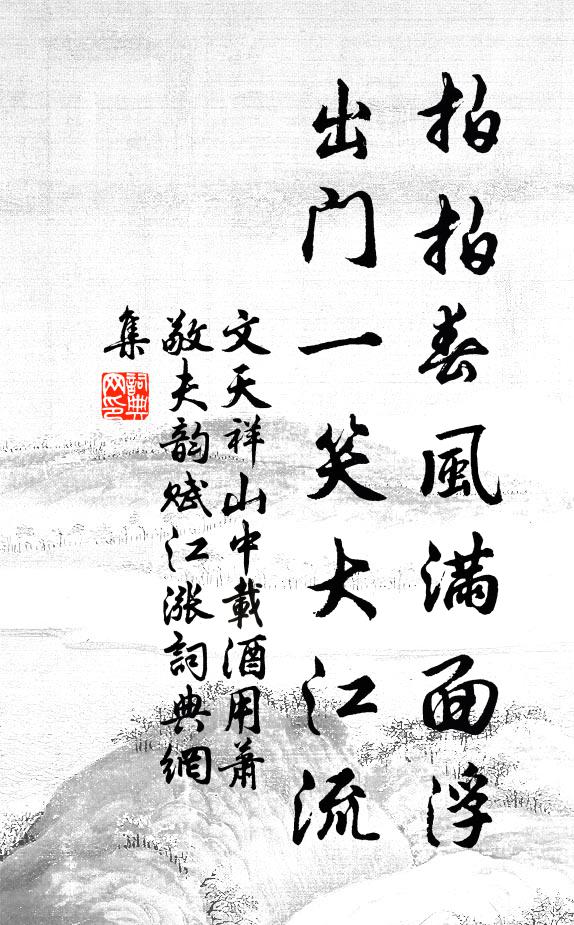 拍拍春風滿面浮
出门一笑大江流
文天祥山中載酒用蕭
敬夫韵赋江漲詞典網
集
詞典
网印